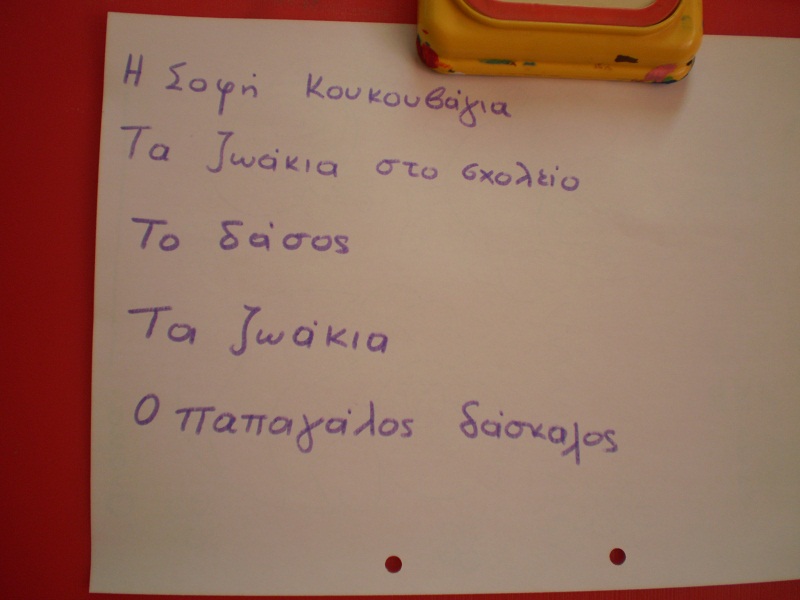 Η Σοφή Κουκουβάγια
Τα ζωάκια στο σχολείο
Το δάσος
Τα ζωάκια
Ο παπαγάλος δάσκαλος